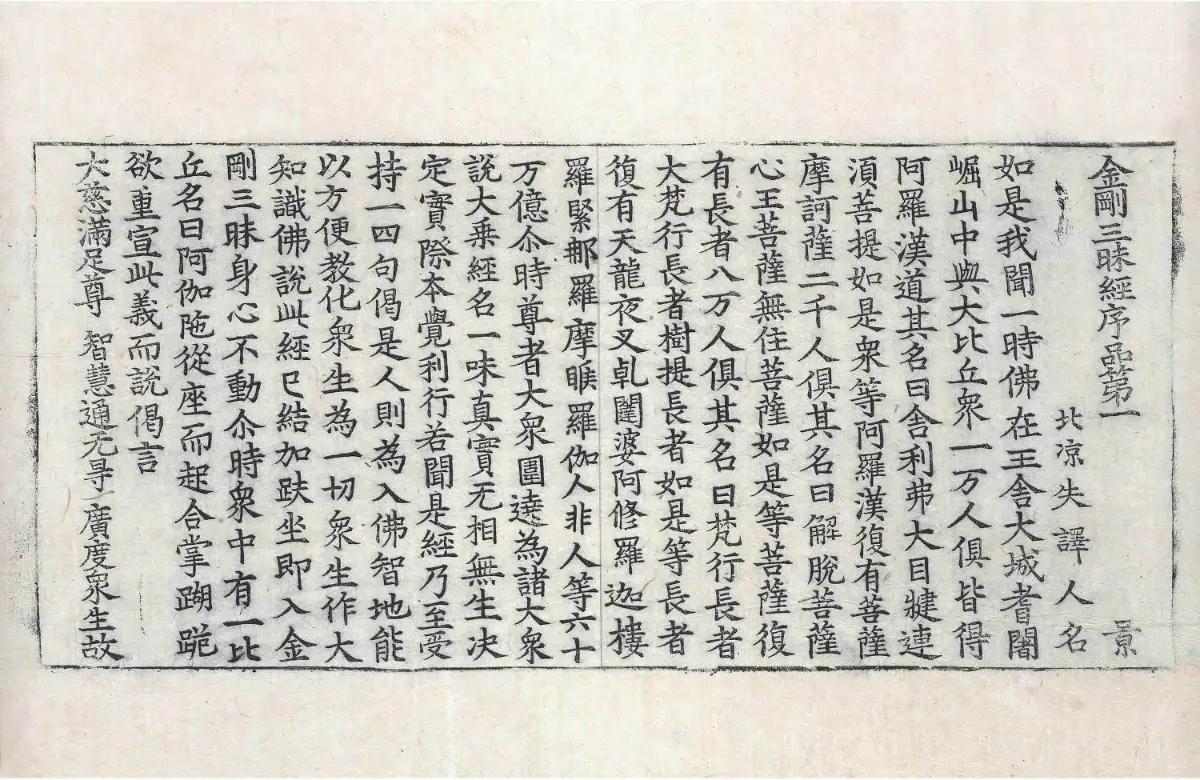 金剛三昧經序品第一 景
北涼失譯人名
如是我聞一時佛在王舍大城耆闍
崛山中與大比丘衆一万人俱皆得
阿羅漢道其名曰舍利弗大目犍連
須菩提如是衆等阿羅漢復有菩薩
摩訶薩二千人俱其名曰解脫菩薩
心王菩薩無住菩薩如是等菩薩復
有長者八万人俱其名曰梵行長者
大梵行長者樹提長者如是等長者
復有天龍夜叉乹闥婆阿修羅迦樓
羅緊那羅摩睺羅伽人非人等六十
万億尒時尊者大衆圍遶為諸大衆
說大乗經名一味真實无相無生决
定實際本覺利行若聞是經乃至受
持一四句偈是人則為入佛智地能
以方便教化衆生為一切衆生作大
知識佛說此經已結加趺坐即入金
剛三昧身心不動尒時衆中有一比
丘名曰阿伽陁從座而起合掌䠒跪
欲重宣此義而說偈言
大慈滿足尊 智慧通无㝵 廣度衆生故